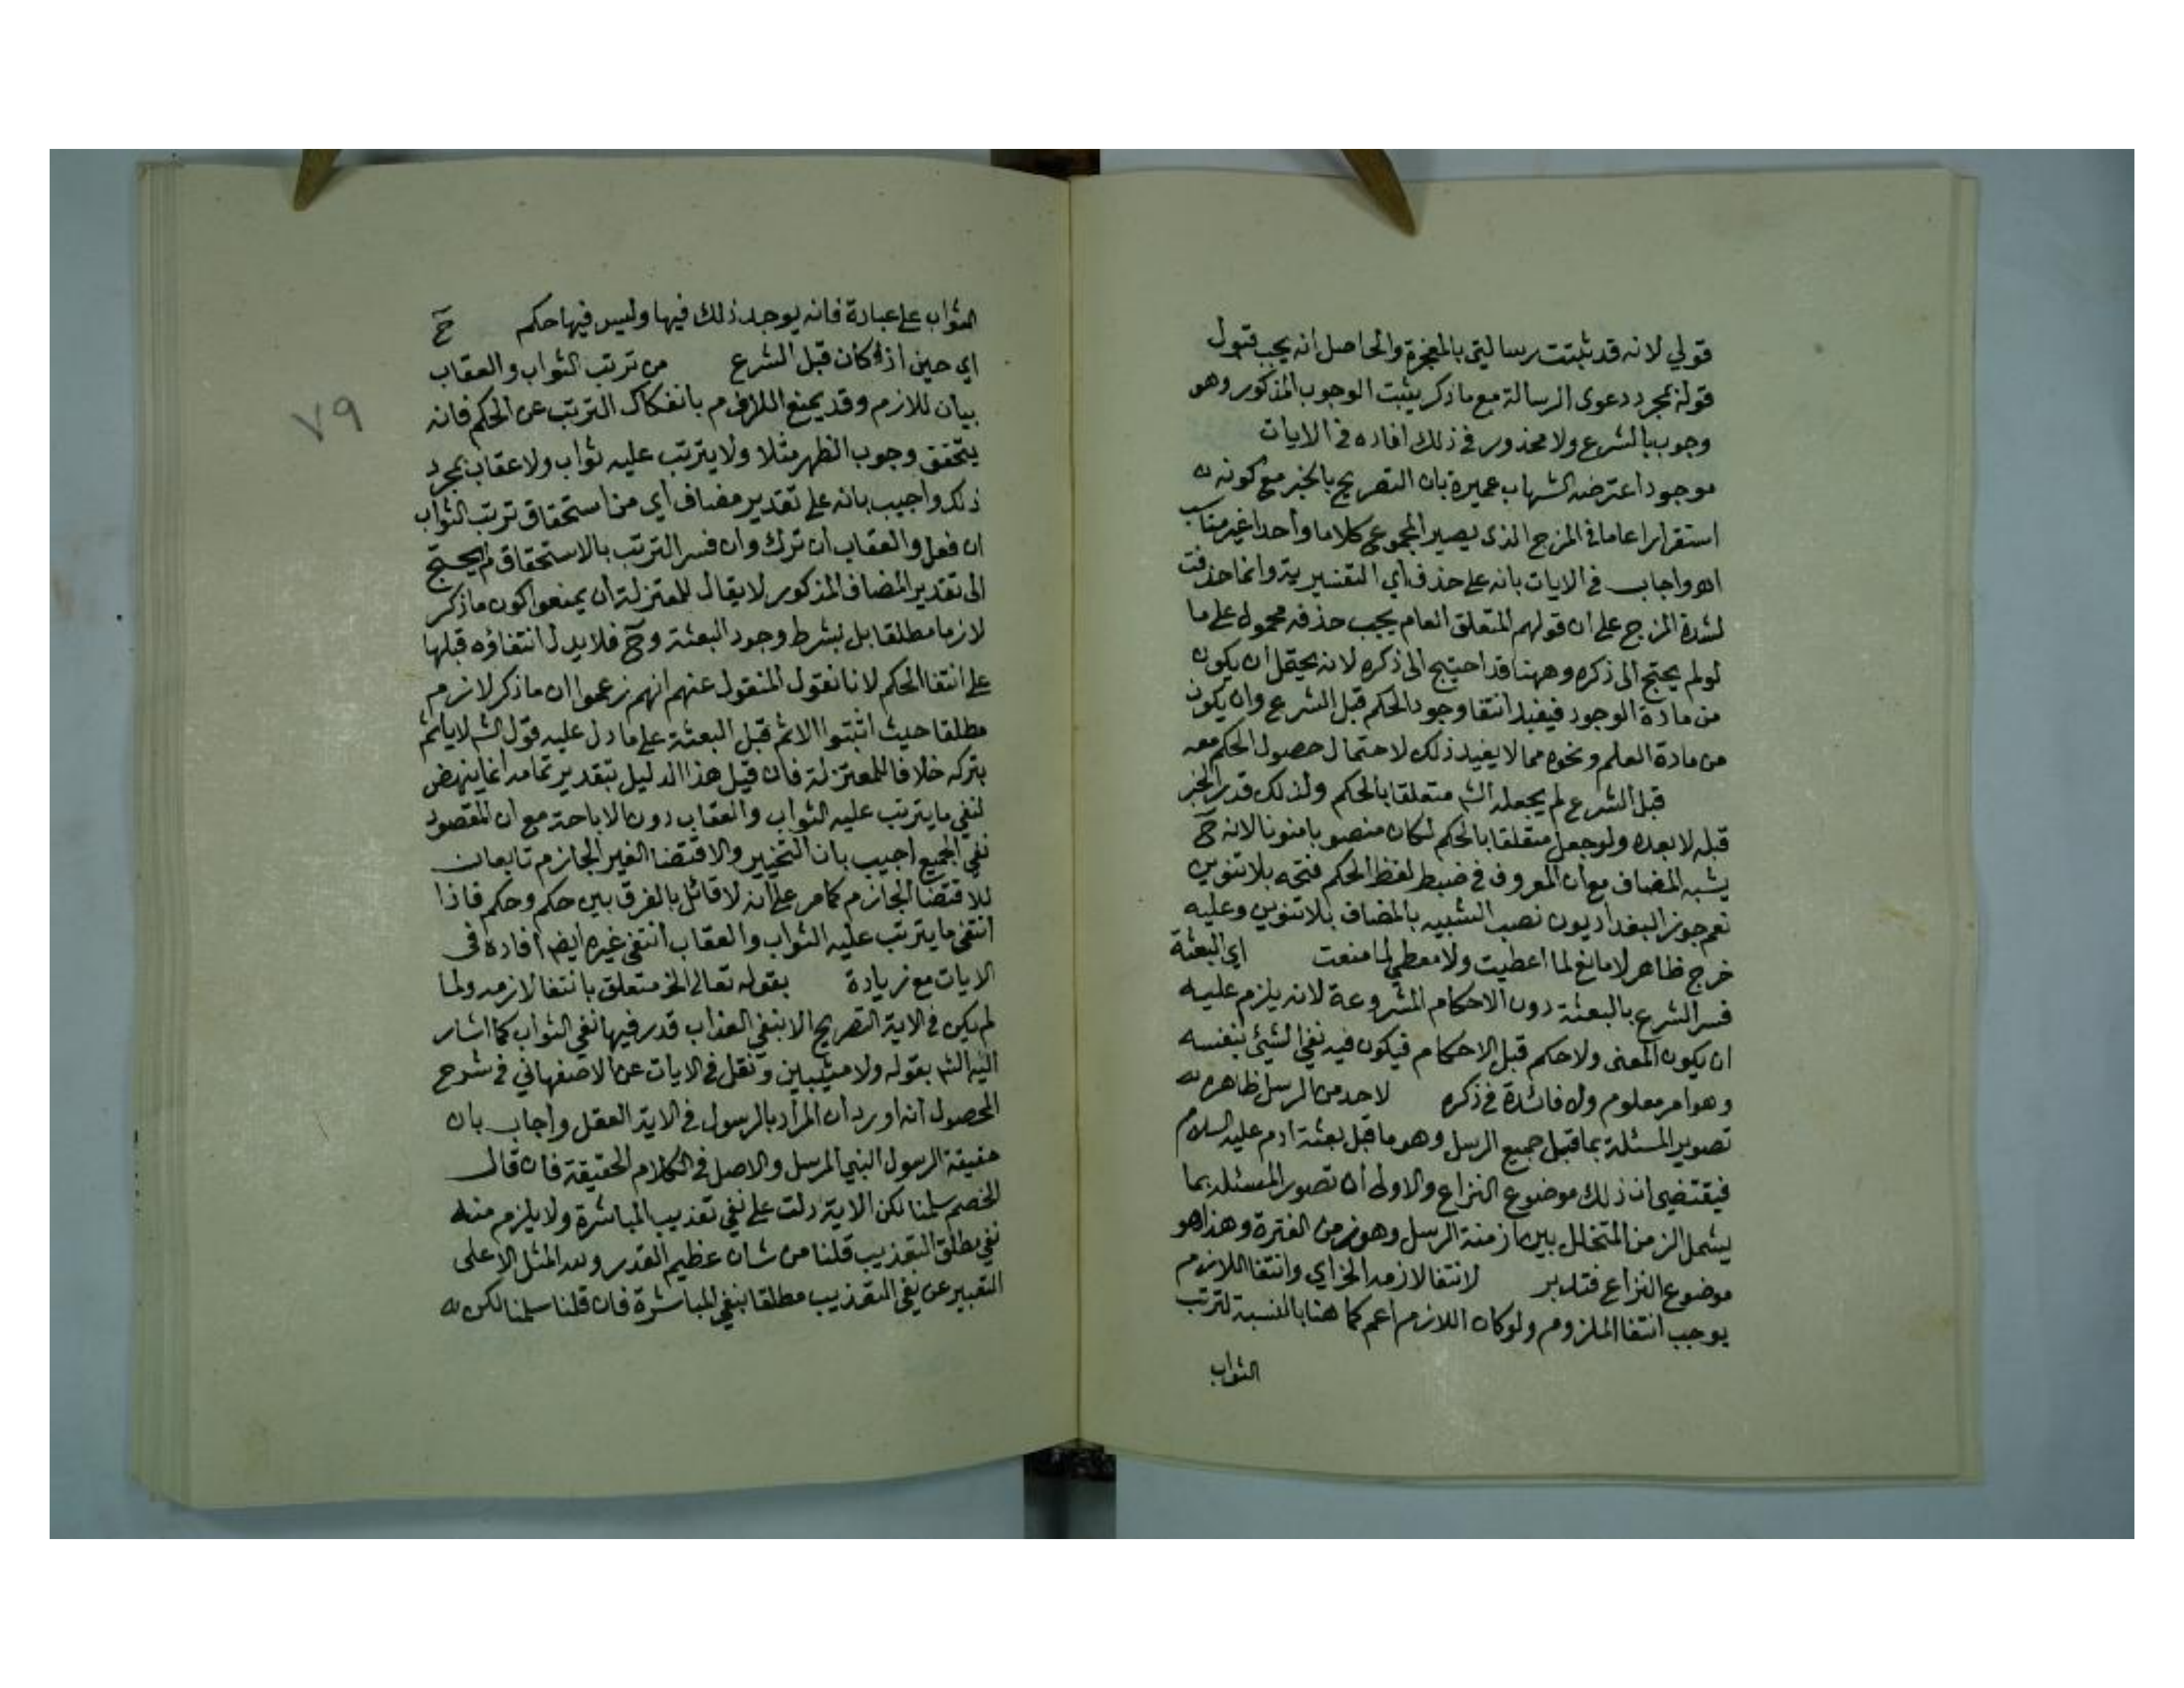 قولي لانه قد ثبتت رسالتي بالمعجزة والحاصل انه يجب قبول
قوله بمجرد دعوى الرسالة مع ما ذكر يثبت الوجوب المذكور وهو
وجوب بالشرع ولا محذور في ذلك افاده في الايات
موجود اعترضه الشهاب عميرة بان التصريح بالخبر مع كونه
استقرارا عاما في المزج الذي يصير المجموع كلاما واحدا غير مناسب
اه واجاب في الايات بانه على حذف اي التفسيرية وانما حذفت
لشدة المزج على ان قولهم المتعلق العام يجب حذفه محمول على ما
لو لم يحتج الى ذكره وههنا قد احتيج الى ذكره لانه يحتمل ان يكون
من مادة الوجود فيفيد انتفا وجود الحكم قبل الشرع وان يكون
من مادة العلم ونحوه مما لا يفيد ذلك لاحتمال حصول الحكم معه
قبل الشرع لم يجعله الش متعلقا بالحكم ولذلك قدر الخبر
قبله لا بعده ولو جعل متعلقا بالحكم لكان منصوبا منونا لانه ح
يشبه المضاف مع ان المعروف في ضبط لفظ الحكم فتحه بلا تنوين
نعم جوز البغداديون نصب الشبيه بالمضاف بلا تنوين وعليه
خرج ظاهر لا مانع لما اعطيت ولا معطي لما منعت اي البعثة
فسر الشرع بالبعثة دون الاحكام المشروعة لانه يلزم عليه
ان يكون المعنى ولا حكم قبل الاحكام فيكون فيه نفي الشيئ بنفسه
وهو امر معلوم ولا فائدة في ذكره لاحد من الرسل ظاهره
تصوير المسئلة بما قبل جميع الرسل وهو ما قبل بعثة ادم عليه السلام
فيقتضي ان ذلك موضوع النزاع والاولى ان تصور المسئلة بما
يشمل الزمن المتخلل بين ازمنة الرسل وهو زمن الفترة وهذا هو
موضوع النزاع فتدبر لانتفا لازمه الخ اي وانتفا اللازم
يوجب انتفا الملزوم ولو كان اللازم اعم كما هنا بالنسبة لترتب
الثواب
٧٩
الثواب على عبادة فانه يوجد ذلك فيها وليس فيها حكم ح
اي حين اذ كان قبل الشرع من ترتب الثواب والعقاب
بيان للازم وقد يمنع اللازم بانفكاك الترتب عن الحكم فانه
يتحقق وجوب الظهر مثلا ولا يترتب عليه ثواب ولا عقاب بمجرد
ذلك واجيب بانه على تقدير مضاف اي من استحقاق ترتب الثواب
ان فعل والعقاب ان ترك وان فسر الترتب بالاستحقاق لم يحتج
الى تقدير المضاف المذكور لا يقال للمعتزلة ان يمنعوا كون ما ذكر
لازما مطلقا بل بشرط وجود البعثة وح فلا يدل انتفاؤه قبلها
على انتفا الحكم لانا نقول المنقول عنهم انهم زعموا ان ما ذكر لازم
مطلقا حيث اثبتوا الاثم قبل البعثة على ما دل عليه قول الش لا ياثم
بتركه خلافا للمعتزلة فان قيل هذا الدليل بتقدير تمامه انما ينهض
لنفي ما يترتب عليه الثواب والعقاب دون الاباحة مع ان المقصود
نفي الجميع اجيب بان التخيير والاقتضا الغير الجازم تابعان
للاقتضا الجازم كما مر على انه لا قائل بالفرق بين حكم وحكم فاذا
انتفى ما يترتب عليه الثواب والعقاب انتفى غيره ايض افاده في
الايات مع زيادة بقوله تعالى الخ متعلق بانتفا لازمه ولما
لم يكن في الاية التصريح الا بنفي العذاب قدر فيها نفي الثواب كما اشار
اليه الش بقوله ولا مثيبين ونقل في الايات عن الاصفهاني في شرح
المحصول انه اورد ان المراد بالرسول في الاية العقل واجاب بان
حقيقة الرسول النبي المرسل والاصل في الكلام الحقيقة فان قال
الخصم سلمنا لكن الاية دلت على نفي تعذيب المباشرة ولا يلزم منه
نفي مطلق التعذيب قلنا من شان عظيم القدر ولله المثل الاعلى
التعبير عن نفي التعذيب مطلقا بنفي المباشرة فان قلنا سلمنا لكن